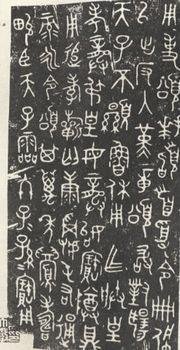 用事頌拜𩒨首受令冊佩
以出反入堇章頌敢對揚
天子不顯魯休用乍朕皇
考龏弔皇母龏始寶尊鼎
用追孝祈匄康屯右通
彔永令頌其萬年眉壽
畯臣天子霝冬子孫寶用